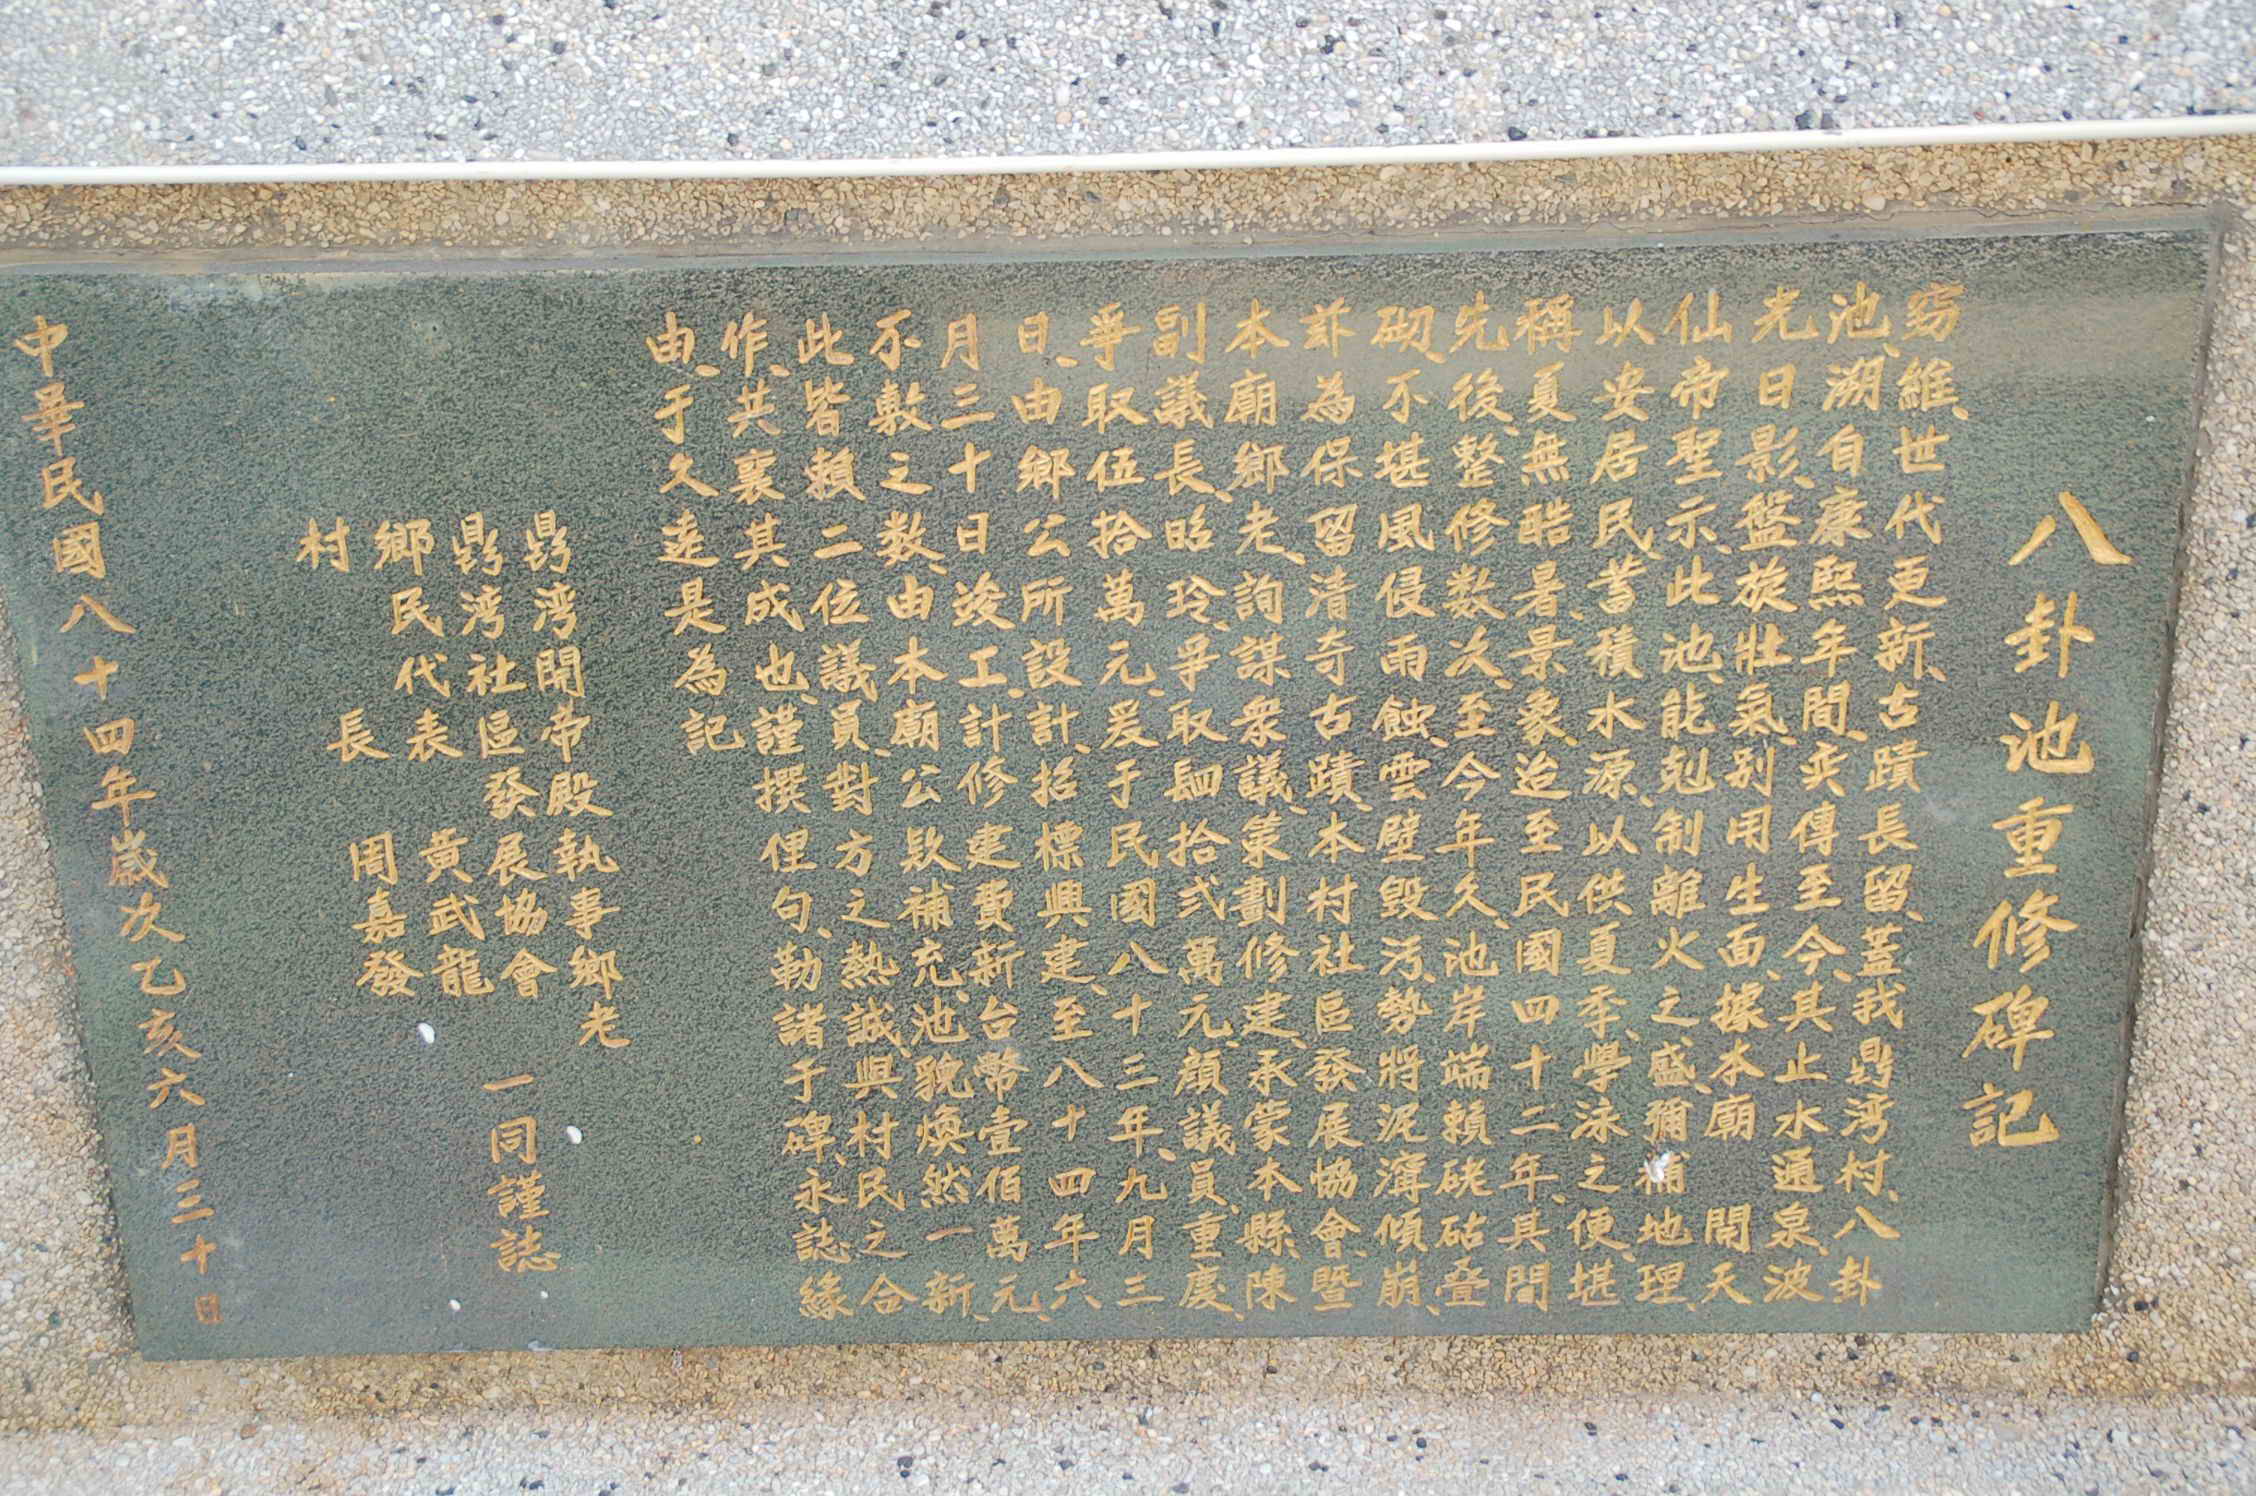 八卦池重修碑記
窈維、世代更新、古蹟長留、蓋我鼎湾村、八卦
池、溯自康熙年間、奕傳至今、其止水通泉、波
光日影、盤旋壯氣、別用生面、據本廟 開天
仙帝聖示、此池、能剋制離火之盛、彌補地理、
以安居民、蓄積水源、以供夏季、學泳之便、堪
稱夏無酷暑、景象、迨至民國四十二年、其間
先後、整修数次、至今年久、池岸端賴硓砧叠
砌、不堪風侵雨蝕、雲壁毀污、勢將泥濘傾崩、
訢為保留清奇古蹟、本村社區發展協會、暨
本廟鄉老、詢謀眾議、策劃修建、承蒙本縣、陳
副議長、昭玲、爭取肆拾弍萬元、顏議員、重慶、
爭取伍拾萬元、爰于民國八十三年、九月三
日、由鄉公所設計、招標興建、至八十四年六
月三十日竣工、計修建費新台幣壹佰萬元、
不敷之数、由本廟公欵補充、池貌煥然一新、
此皆賴二位議員、對方之熱誠、與村民之合
作、共襄其成也、謹撰俚句、勒諸于碑、永誌緣
由、于久逺是為記
鼎湾開帝殿執事鄉老
鼎湾社區發展協會 一同謹誌
鄉民代表 黄武龍
村長 周嘉發
中華民國八十四年歲次乙亥六月三十日